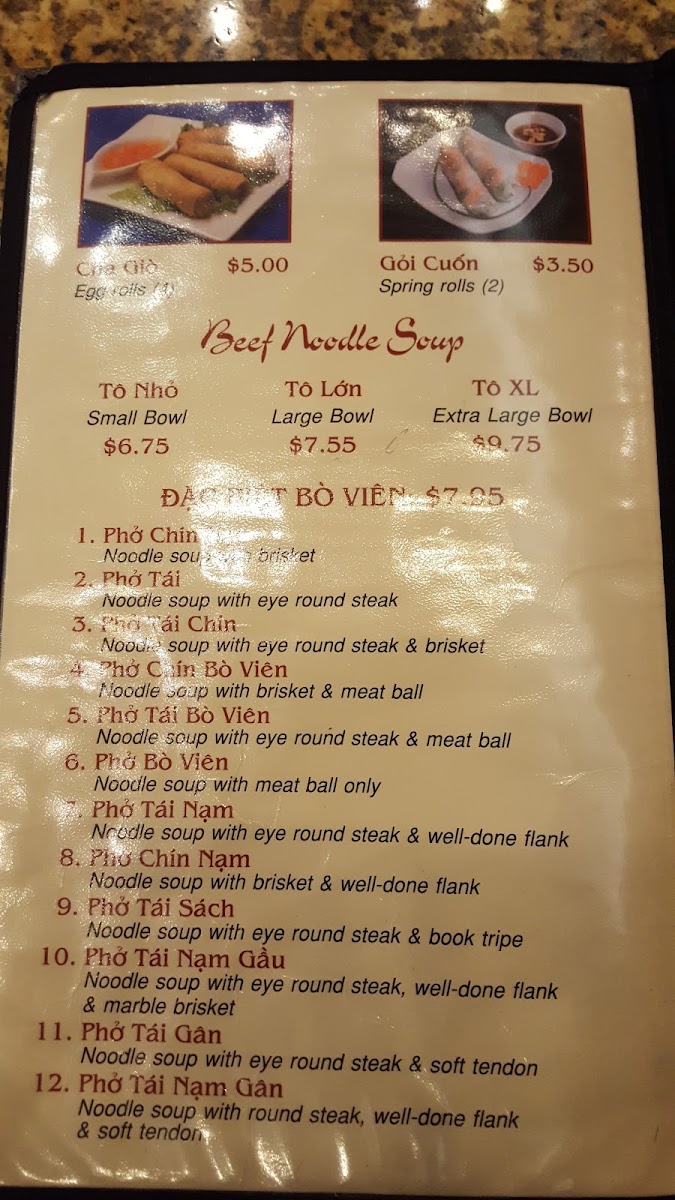 Chả Giò $5.00
Egg rolls (4)
Gỏi Cuốn $3.50
Spring rolls (2)
Beef Noodle Soup
Tô Nhỏ
Small Bowl
$6.75
Tô Lớn
Large Bowl
$7.55
Tô XL
Extra Large Bowl
$9.75
BÒ VIÊN $7.95
1. Phở Chín
Noodle soup with brisket
2. Phở Tái
Noodle soup with eye round steak
3. Phở Tái Chín
Noodle soup with eye round steak & brisket
4. Phở Chín Bò Viên
Noodle soup with brisket & meat ball
5. Phở Tái Bò Viên
Noodle soup with eye round steak & meat ball
6. Phở Bò Viên
Noodle soup with meat ball only
7. Phở Tái Nạm
Noodle soup with eye round steak & well-done flank
8. Phở Chín Nạm
Noodle soup with brisket & well-done flank
9. Phở Tái Sách
Noodle soup with eye round steak & book tripe
10. Phở Tái Nạm Gầu
Noodle soup with eye round steak, well-done flank
& marble brisket
11. Phở Tái Gân
Noodle soup with eye round steak & soft tendon
12. Phở Tái Nạm Gân
Noodle soup with round steak, well-done flank
& soft tendon